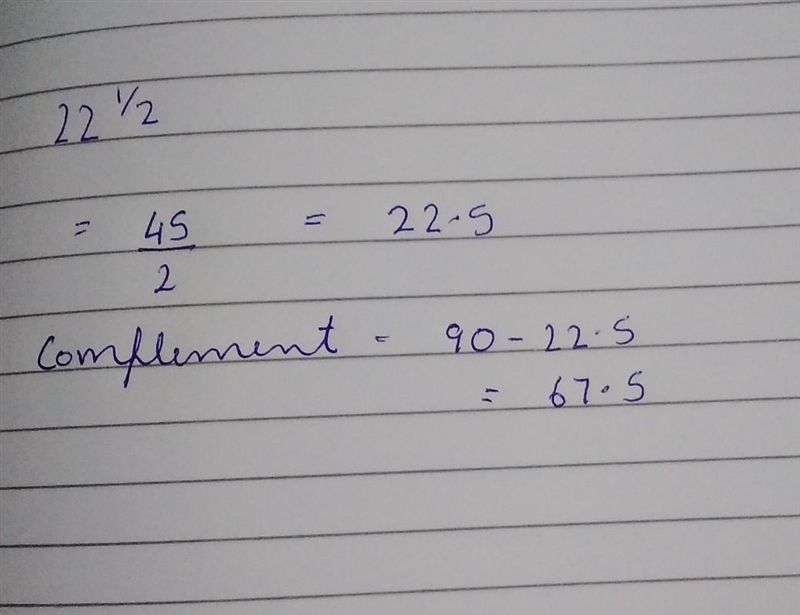 22 1/2
= 45/2 = 22.5
Complement = 90 - 22.5
= 67.5